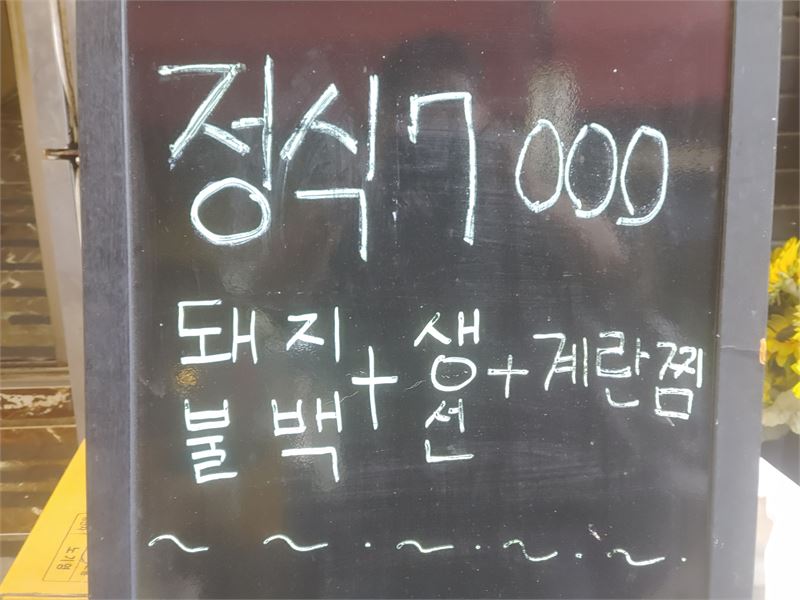 정식 7000
돼지불백 + 생선 + 계란찜
~ ~ . ~ . ~ . ~ .